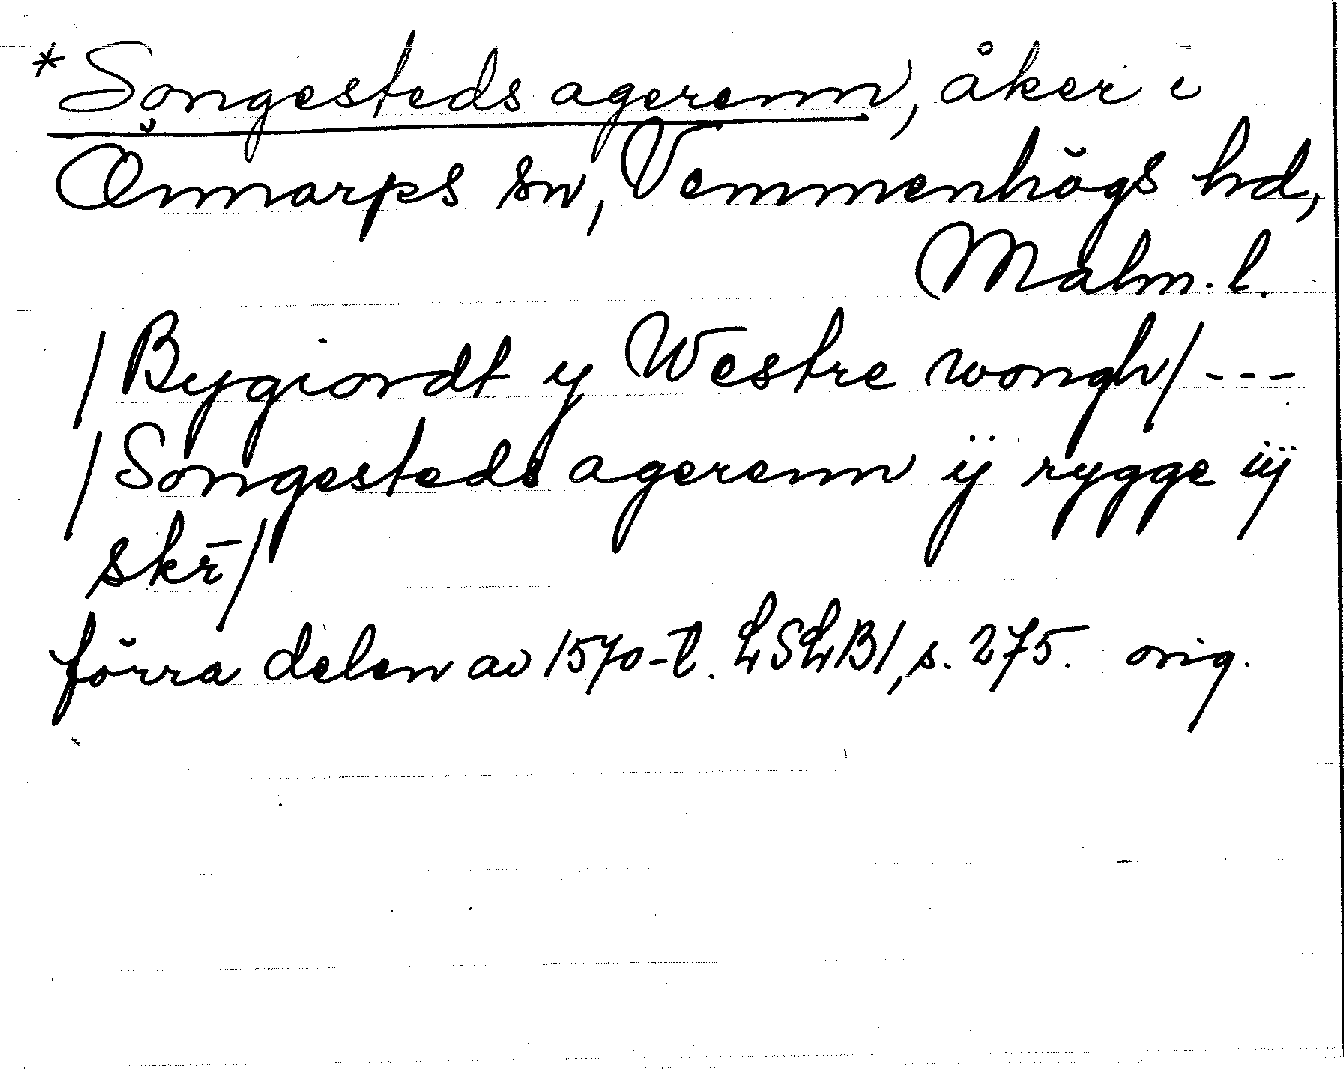 *Songesteds agerenn, åker i
Önnarps sn, Vemmenhögs hd,
Malm. l.
/Bygiordt y Westre wongh/ ---
/Songesteds agerenn ij rygge iij
skr̄/
förra delen av 1570-t. LSLB1, s. 275. orig.